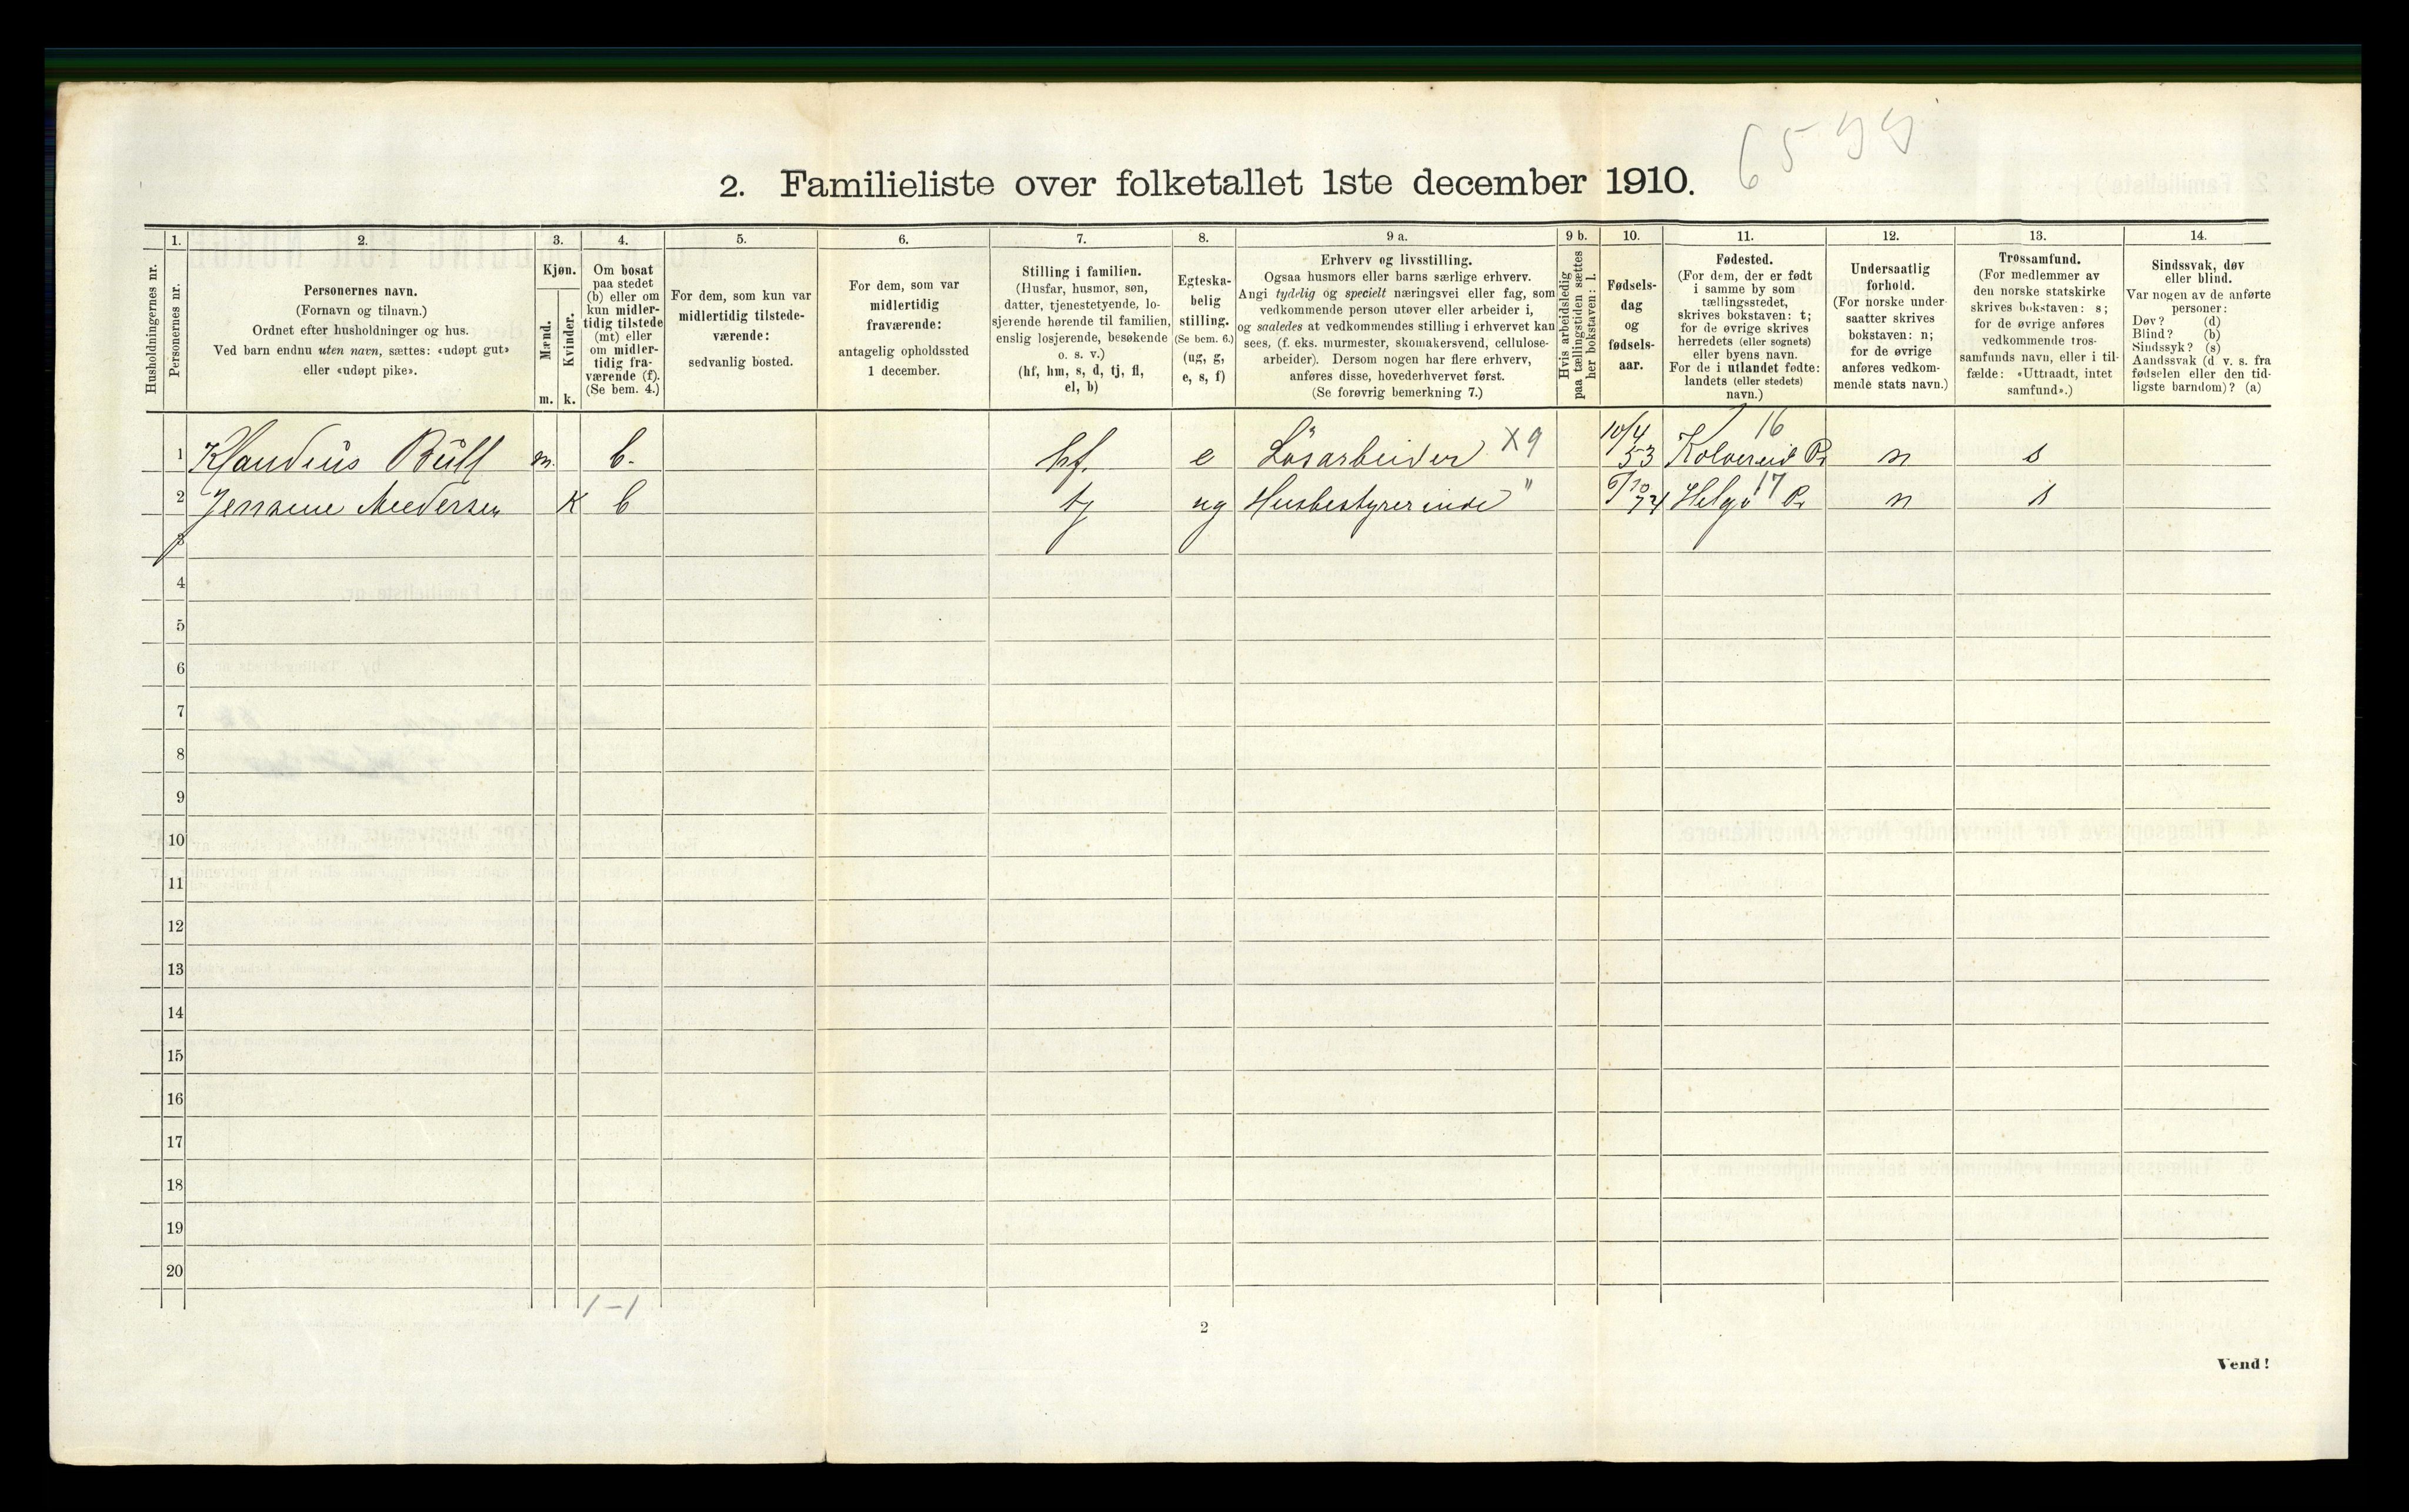 6599
2. Familieliste over folketallet 1ste december 1910.
1. 2. 3. 4. 5. 6. 7. 8. 9 a. 9 b. 10. 11. 12. 13. 14.
Husholdningernes nr.
Personernes nr.
Personernes navn.
(Fornavn og tilnavn.)
Ordnet efter husholdninger og hus.
Ved barn endnu uten navn, sættes: «udøpt gut»
eller «udøpt pike».
Kjøn.
Mænd.
Kvinder.
m. k.
Om bosat
paa stedet
(b) eller om
kun midler-
tidig tilstede
(mt) eller
om midler-
tidig fra-
værende (f).
(Se bem. 4.)
For dem, som kun var
midlertidig tilstede-
værende:
sedvanlig bosted.
For dem, som var
midlertidig
fraværende:
antagelig opholdssted
1 december.
Stilling i familien.
(Husfar, husmor, søn,
datter, tjenestetyende, lo-
sjerende hørende til familien,
enslig losjerende, besøkende
o. s. v.)
(hf, hm, s, d, tj, fl,
el, b)
Egteska-
belig
stilling.
(Se bem. 6.)
(ug, g,
e, s, f)
Erhverv og livsstilling.
Ogsaa husmors eller barns særlige erhverv.
Angi tydelig og specielt næringsvei eller fag, som
vedkommende person utøver eller arbeider i,
og saaledes at vedkommendes stilling i erhvervet kan
sees, (f. eks. murmester, skomakersvend, cellulose-
arbeider). Dersom nogen har flere erhverv,
anføres disse, hovederhvervet først.
(Se forøvrig bemerkning 7.)
Hvis arbeidsledig
paa tællingstiden sættes
her bokstaven: l.
Fødsels-
dag
og
fødsels-
aar.
Fødested.
(For dem, der er født
i samme by som
tællingsstedet,
skrives bokstaven: t;
for de øvrige skrives
herredets (eller sognets)
eller byens navn.
For de i utlandet fødte:
landets (eller stedets)
navn.)
Undersaatlig
forhold.
(For norske under-
saatter skrives
bokstaven: n;
for de øvrige
anføres vedkom-
mende stats navn.)
Trossamfund.
(For medlemmer av
den norske statskirke
skrives bokstaven: s;
for de øvrige anføres
vedkommende tros-
samfunds navn, eller i til-
fælde: «Uttraadt, intet
samfund».)
Sindssvak, døv
eller blind.
Var nogen av de anførte
personer:
Døv? (d)
Blind? (b)
Sindssyk? (s)
Aandssvak (d v. s. fra
fødselen eller den tid-
ligste barndom)? (a)
1 Klaudius Bull m. b. hf. e Løsarbeider X9 10/4 53 Kolvereid Pr 16 n s
2 Jensine Andersen K b tj ug Husbestyrerinde " 6/10 74 Helgø Pr 17 n s
3
4
5
6
7
8
9
10
11
12
13
14
15
16
17
18
19
20
1-1
2
Vend!